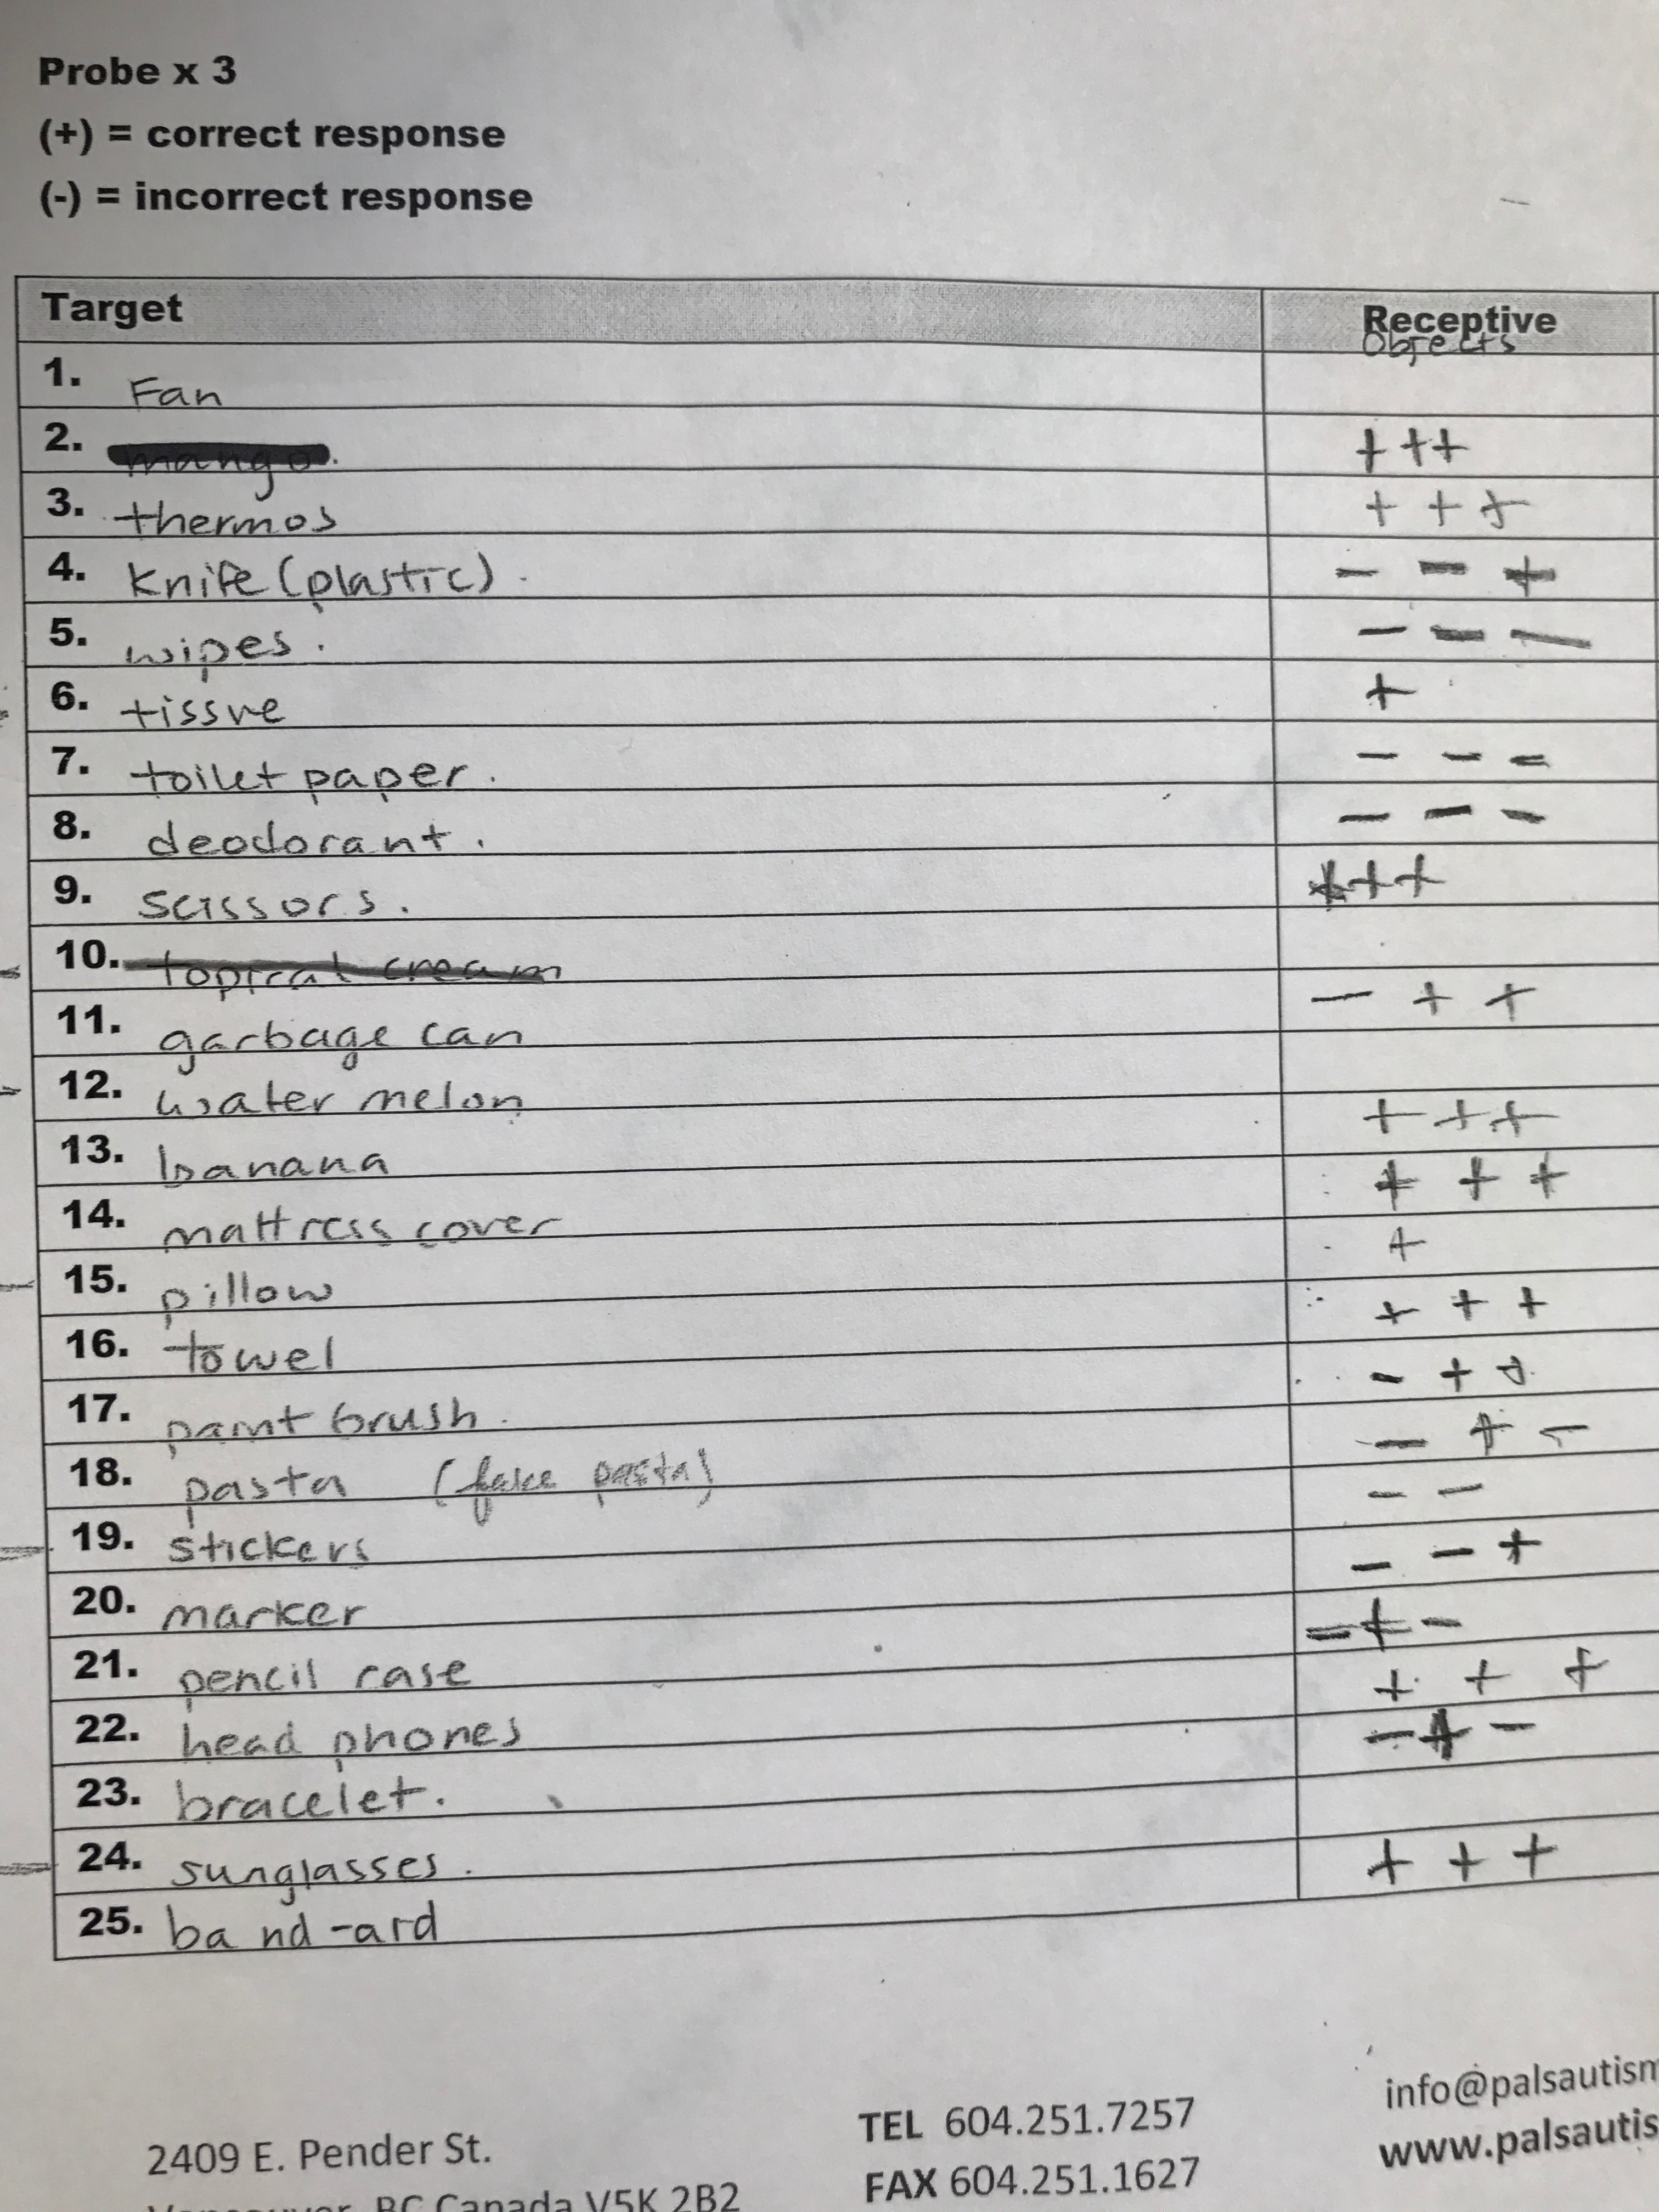 Probe x 3
(+) = correct response
(-) = incorrect response
Target Receptive
objects
1. Fan
2. mango. + + +
3. thermos + + +
4. Knife (plastic). - - +
5. wipes. - - -
6. tissue +
7. toilet paper. - - -
8. deodorant. - - -
9. scissors. + + +
10. topical cream
11. garbage can - + +
12. water melon
13. banana + + +
14. mattress cover + + +
15. pillow +
16. towel + + +
17. paint brush. - + +
18. pasta (fake pasta) - + -
19. stickers - -
20. marker - - +
21. pencil case - + -
22. head phones + + +
23. bracelet. - + -
24. sunglasses.
25. band-aid + + +
2409 E. Pender St. TEL 604.251.7257 info@palsautism
Vancouver, BC Canada V5K 2B2 FAX 604.251.1627 www.palsautis